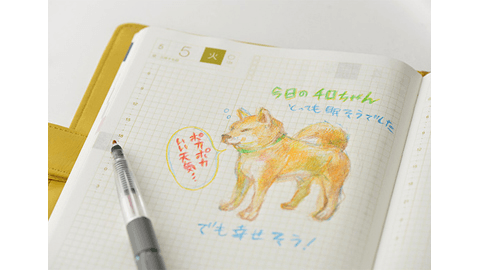 5 火
今日の4口ちゃん
とっても眠そうでした
ポカポカ
いい天気…
でも幸せそう!